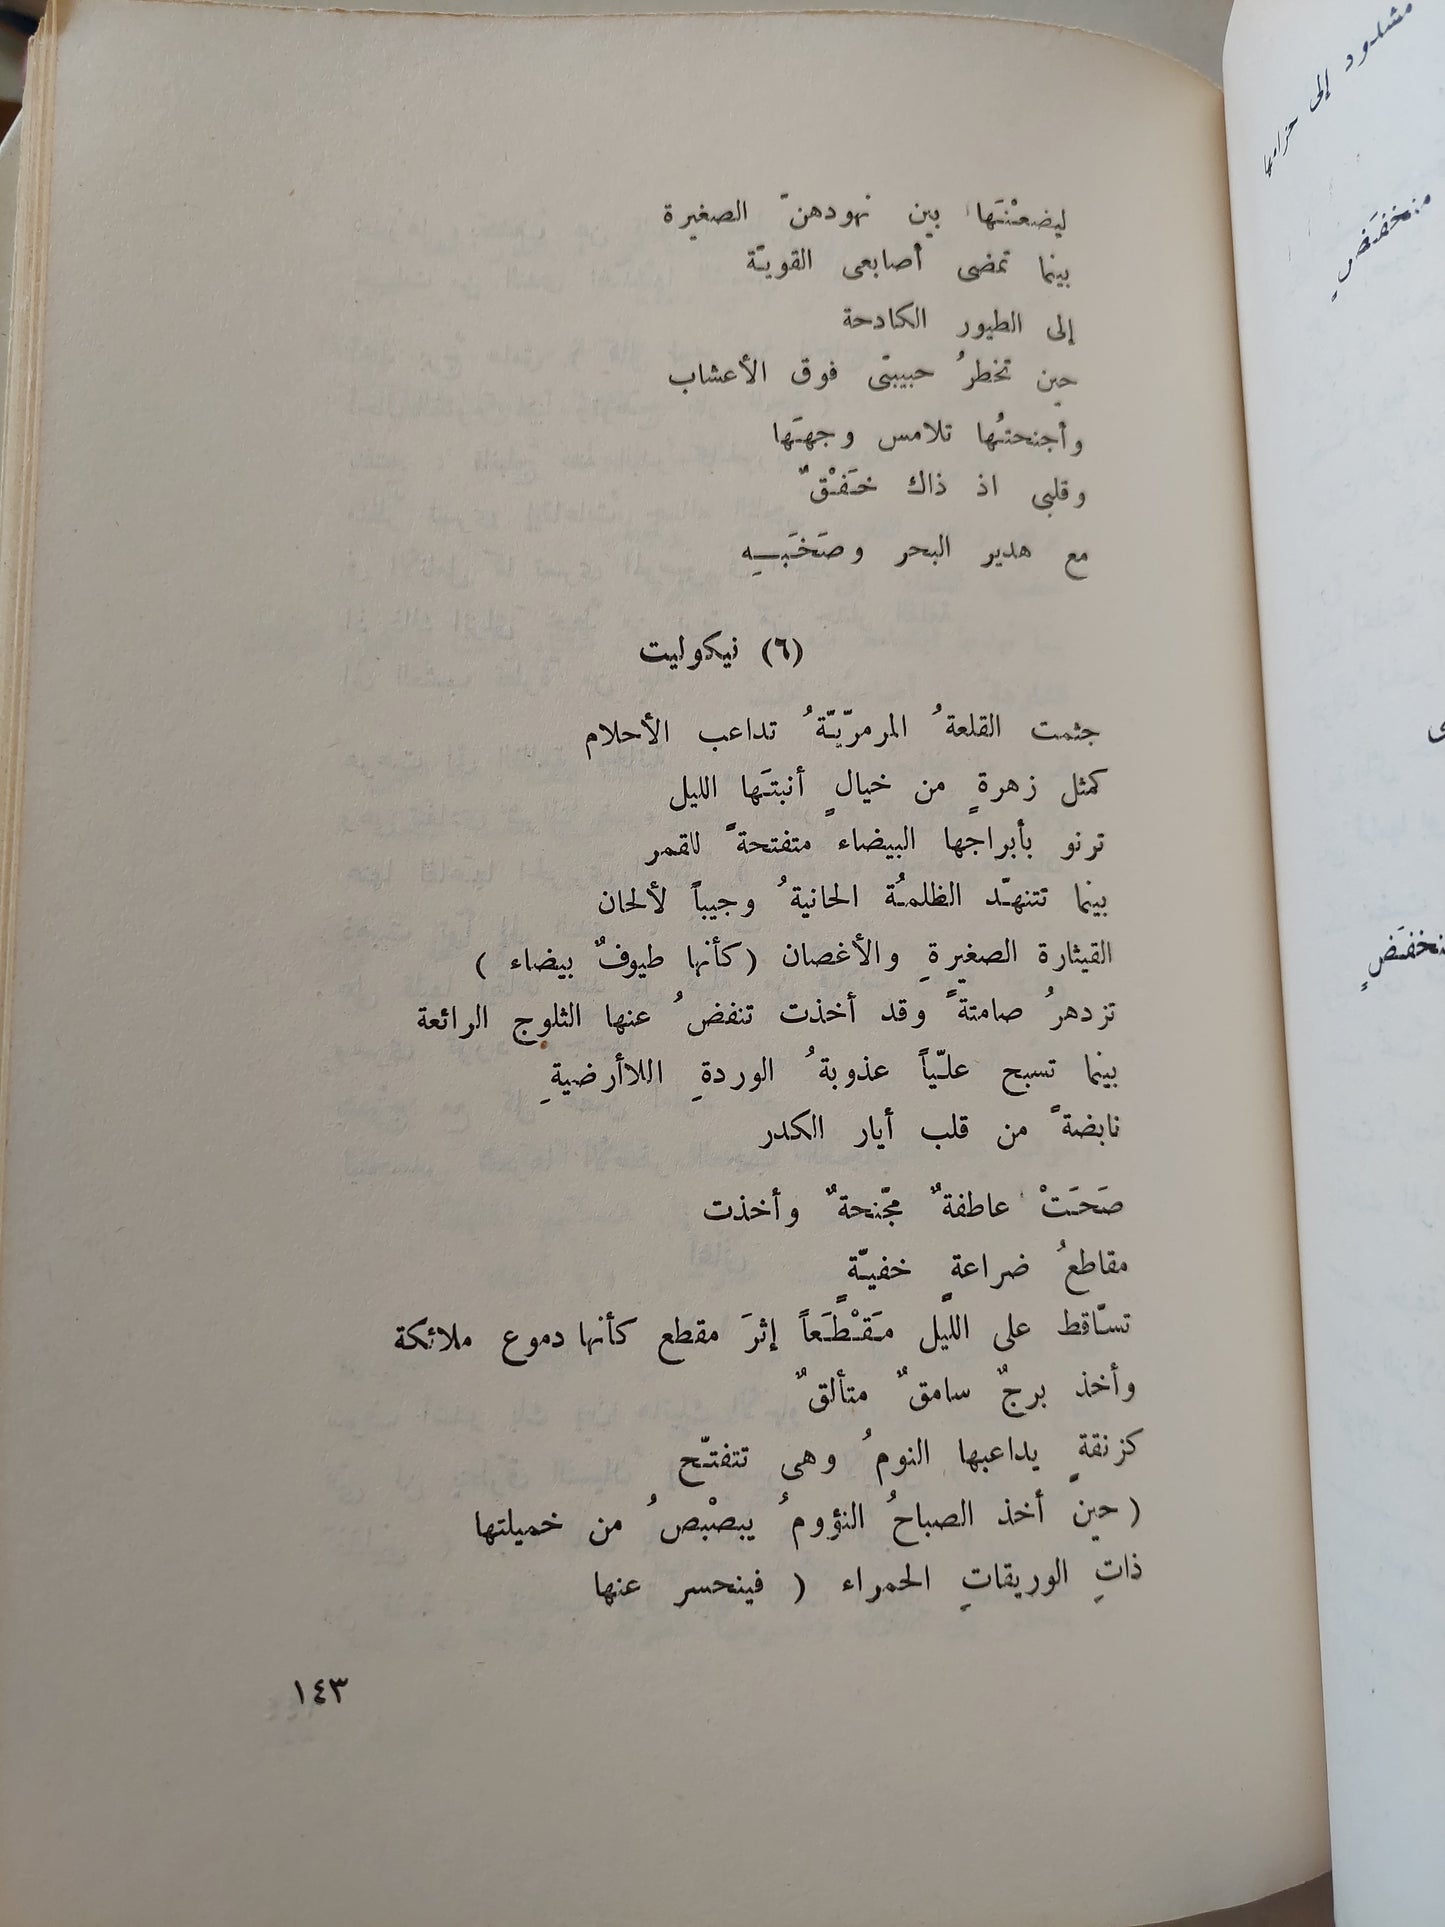 ليضعْنَها بين نهودهنّ الصغيرة
بينما تمضى أصابعى القويّة
إلى الطيور الكادحة
حين تخطرُ حبيبتى فوق الأعشاب
وأجنحتُها تلامس وجهَها
وقلبى اذ ذاك خَفْقٌ
مع هدير البحر وصَخَبِه
(٦) نيكوليت
جثمت القلعةُ المرمريّةُ تداعب الأحلام
كمثل زهرةٍ من خيالٍ أنبتَها الليل
ترنو بأبراجها البيضاء متفتحةً للقمر
بينما تتنهّد الظلمُة الحانيةُ وجيباً لألحان
القيثارة الصغيرةِ والأغصان (كأنها طيوفٌ بيضاء )
تزدهرُ صامتةً وقد أخذت تنفضُ عنها الثلوج الرائعة
بينما تسبح عليّاً عذوبةُ الوردةِ اللاأرضيةِ
نابضةً من قلب أيار الكدر
صَحَتْ عاطفةٌ مجّنحةٌ وأخذت
مقاطعُ ضراعةٍ خفيّةٍ
تسّاقط على الليل مَقْطَعاً إثرَ مقطع كأنها دموع ملائكة
وأخذ برجٌ سامقٌ متألقٌ
كزنقةٍ يداعبها النومُ وهى تتفتّح
( حين أخذ الصباحُ النؤومُ يبصْبصُ من خميلتها
ذاتِ الوريقاتِ الحمراء ( فينحسر عنها
١٤٣
مشدود إلى حزامها
منخفَضٍ
منخفَضٍ